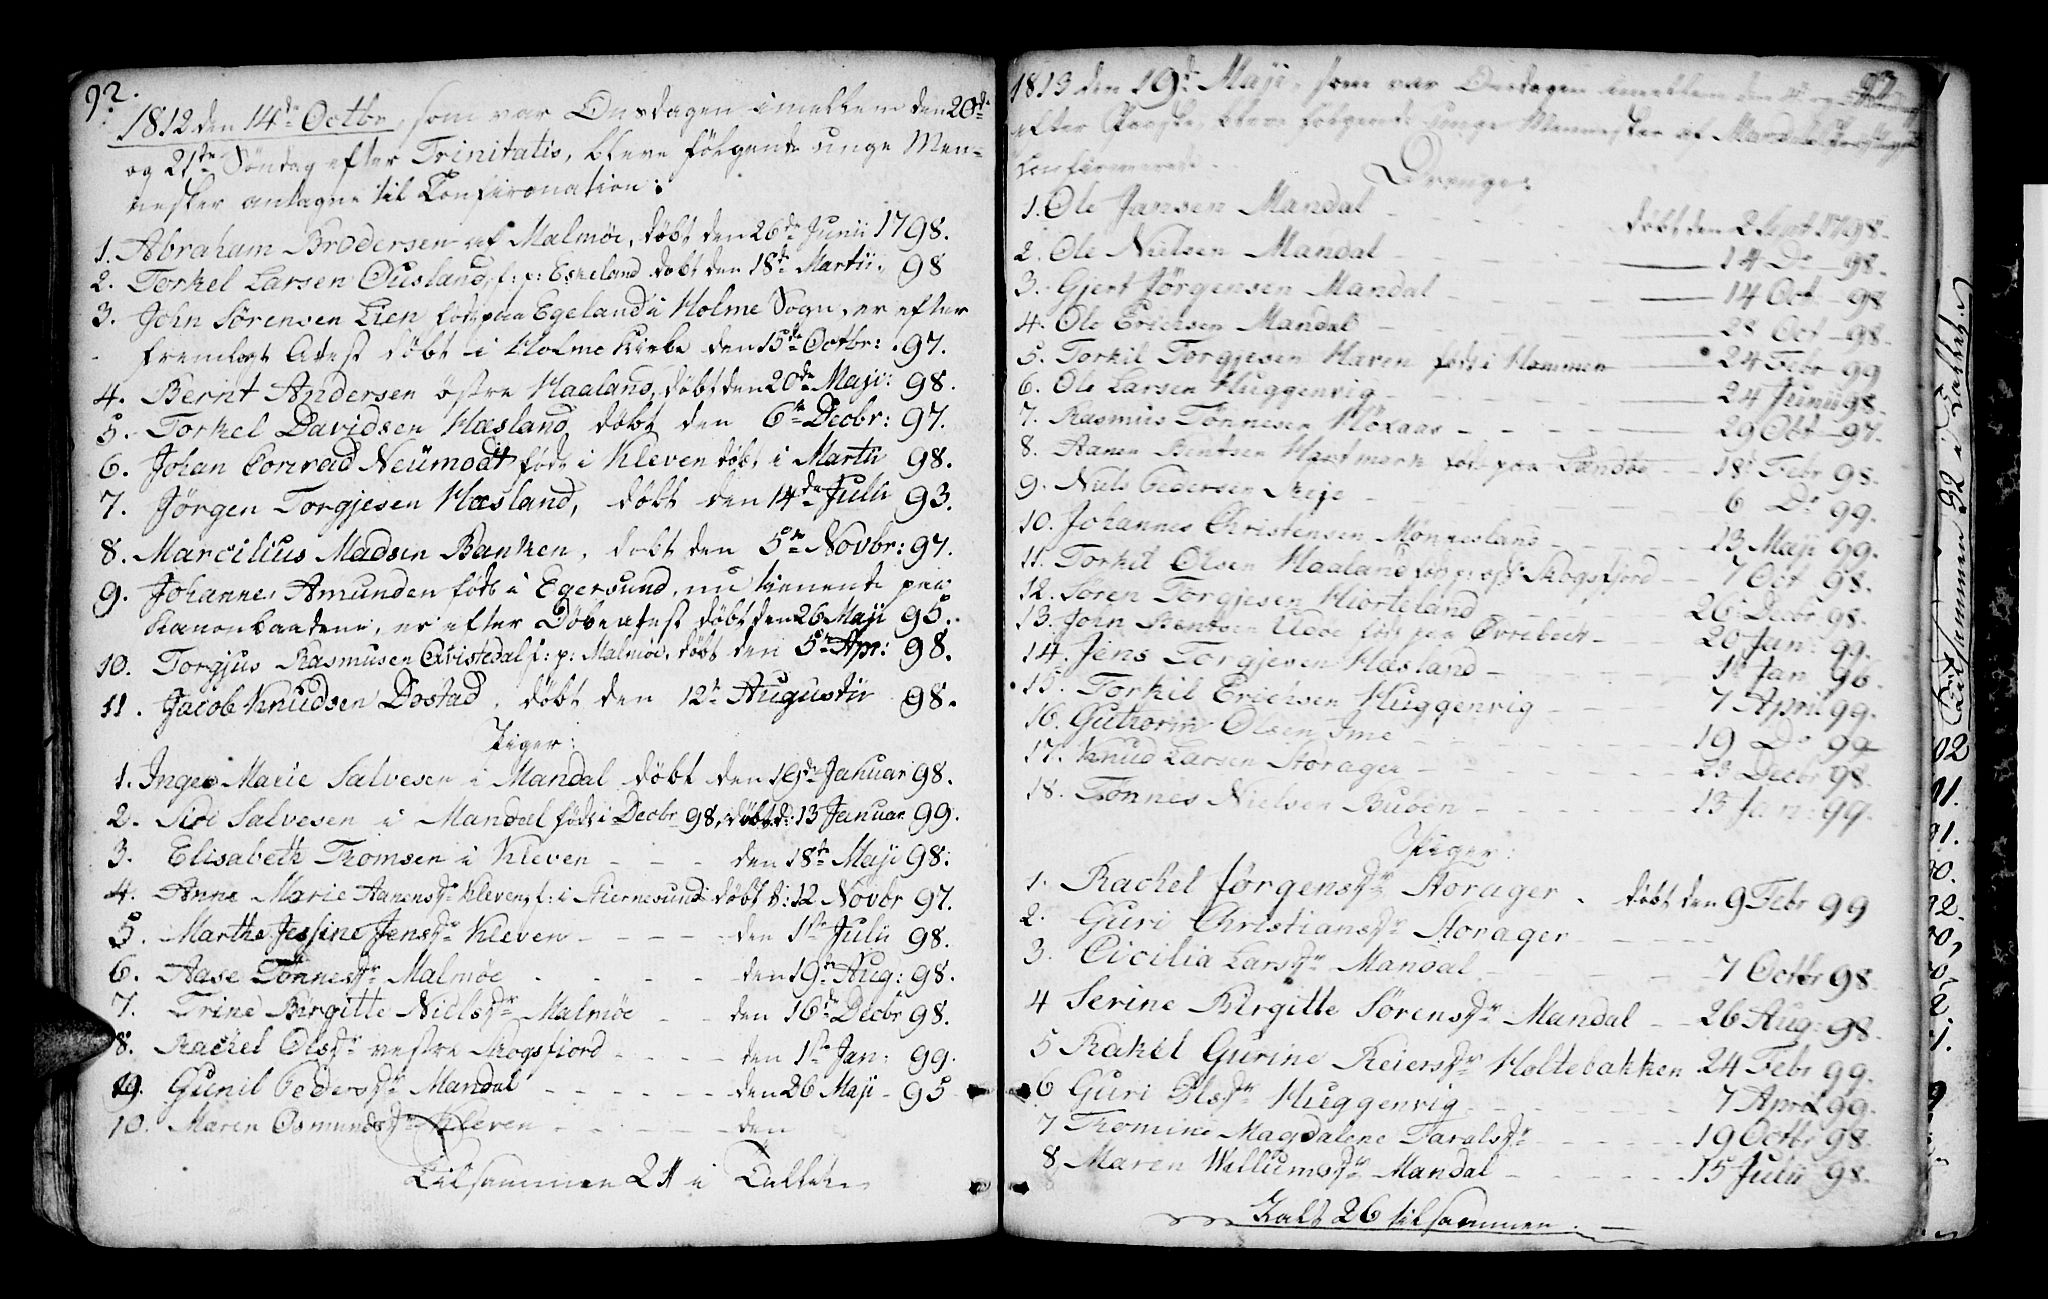 92.
1812 den 14de Octbr, som var Onsdagen imellem den 20de
og 21te Søndag efter Trinitatis, bleve følgende unge Men-
nesker antagne til Confirmation:
1. Abraham Brodersen af Malmöe, döbt den 26de Junii 1798.
2. Torkel Larsen Ousland, f: p: Eskeland döbt den 18de Martii. 98
3. John Sörensen Lien föd paa Egeland i Holme Sogn, er efter
fremlagt Atest döbt i Holme Kirke den 15de Octbr: 97.
4. Bernt Andersen östre Haaland, döbt den 20de Maji: 98.
5. Torkel Davidsen Hæsland döbt den 6te Decbr: 97.
6. Johan Conrad Neümodt föds i Kleven döbt i Martii 98.
7. Jörgen Torgjesen Hæsland, döbt den 14de Julii 93.
8. Marcilius Madsen Banken, döbt den 5te Novbr: 97.
9. Johannes Amunden föds i Egersund, nu tienende paa
Kanonbaadene, er efter Döbeatest döbt den 26 Maji 95.
10. Torgjus Rasmusen Qvistedal f: p: Malmöe, döbt den 5te Apr: 98.
11. Jacob Knudsen Döstad, döbt den 12te Augustii 98.
Piger:
1. Inger Marie Salvesen i Mandal döbt den 19de Januar 98.
2. Siri Salvesen i Mandal föds i Decbr 98, döbt d: 13 Januar 99.
3. Elisabeth Tomsen i Kleven - - - den 18de Maji 98.
4. Anne Marie Aanensdr Kleven, f: i Skiernesund döbt d: 12 Novbr 97.
5. Marthe Jessine Jensdr Kleven - - - den 1ste Julii 98.
6. Aase Tönnesdr Malmöe - - - den 19de Aug: 98.
7. Trine Birgitte Nielsdr Malmöe - - den 16de Decbr 98.
8. Rachel Olsdr vestre Skogsfjord - - - den 1ste Jan: 99.
9. Gunil Pedersdr Mandal - - - den 26 Maji - 95
10. Maren Osmundsdr Kleven - - - den
Tilsammen 21 i Tallet
93
1813 den 19de Maji, som var Onsdagen imellem den 4de og
efter Paaske, bleve følgende unge Mennesker af Mandals
Confirmerede.
Drenge:
1. Ole Jansen Mandal - - - döbt den 2 Sept 1798.
2. Ole Nielsen Mandal - - - 14 Do 98.
3. Gjert Jörgensen Mandal - - - 14 Oct 98
4. Ole Erichsen Mandal - - - 28 Oct 98.
5. Torkil Torgjesen Haven föds i Hommen - 24 Febr 99
6. Ole Larsen Huggenvig - - - 24 Junii 98.
7. Rasmus Tönnesen Höxaas - - - 29 Obt 97.
8. Aanen Bentsen Hartmark föds paa Sandöe - - 18 Febr 98.
9. Niels Pedersen Skeje - - - 6 Do 99.
10. Johannes Christensen Mönnesland - - - 13 Maji 99.
11. Torkil Olsen Haaland föds p: Skogsfjord - - 7 Oct 98.
12. Sören Torgjesen Hiorteland - - - 26 Decbr 98.
13. John Bentsen Udöe föds paa Övrebech - - 20 Jan: 99.
14. Jens Torgjesen Hæsland - - - 1te Jan 96
15. Torkil Erichsen Huggenvig - - - 7 April 99.
16. Guthorm Olsen Ime - - - 19 Do 99
17. Knud Larsen Storager - - - 23 Decbr 98.
18. Tönnes Nielsen Buböen - - - 13 Jan: 99.
Piger:
1. Rachel Jörgensdr Storager - döbt den 9 Febr 99
2. Guri Christiansdr Storager - - -
3. Cicilia Larsdr Mandal - - - 7 Octbr 98.
4 Serine Birgitte Sörensdr Mandal - - 26 Aug: 98.
5 Rakel Gurine Reiersdr Holtebakken 24 Febr 99.
6 Guri Olsdr Huggenvig - - - 7 April 99.
7 Tomine Magdalene Taralsdr - - - 19 Octbr 98.
8. Maren Wellumsdr Mandal - - - 15 Julii 98.
Talt 26 tilsammen.